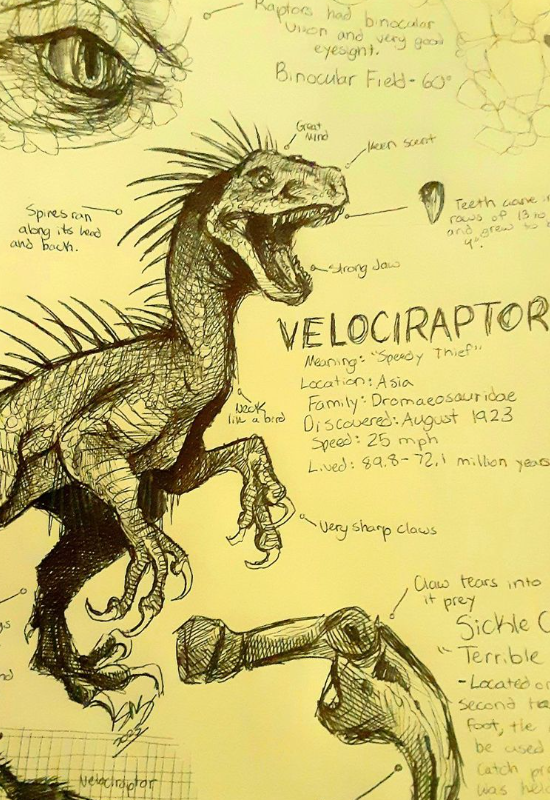 Raptors had binocular
vision and very good
eyesight.
Binocular Field - 60°
Great
mind
Keen scent
Spines ran
along its head
and back.
Teeth came in
rows of 13 to
and grew to
4".
Strong Jaw
VELOCIRAPTOR
Meaning: "Speedy Thief"
Location: Asia
Family: Dromaeosauridae
Discovered: August 1923
Speed: 25 mph
Lived: 89.8-72.1 million years
Neck
like a bird
Very sharp claws
Claw tears into
it prey
Sickle C
"Terrible
- Located on
second
foot, the
be used
catch
was held
2023
Velociraptor